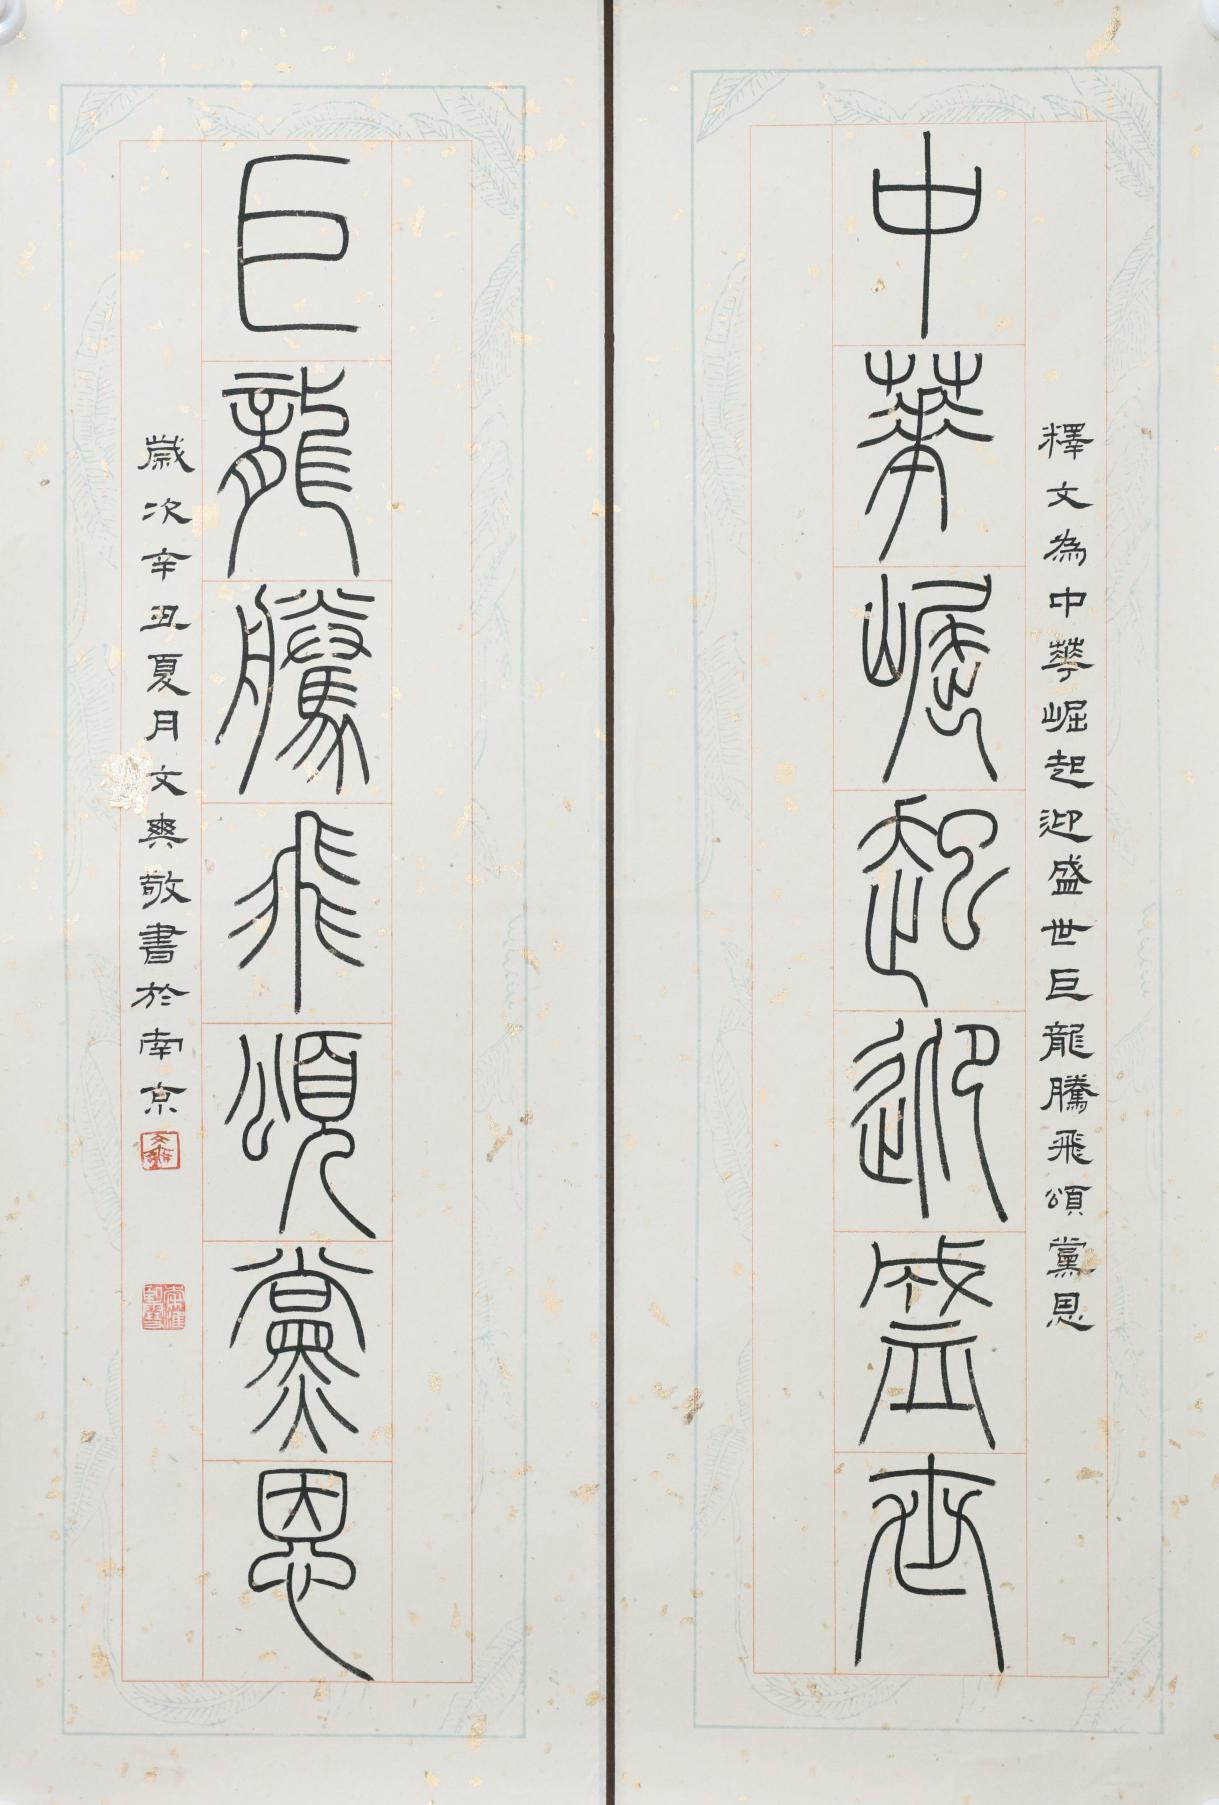 釋文為中華崛起迎盛世巨龍騰飛頌黨恩
中華崛起迎盛世
巨龍騰飛頌黨恩
歲次辛丑夏月文爽敬書於南京